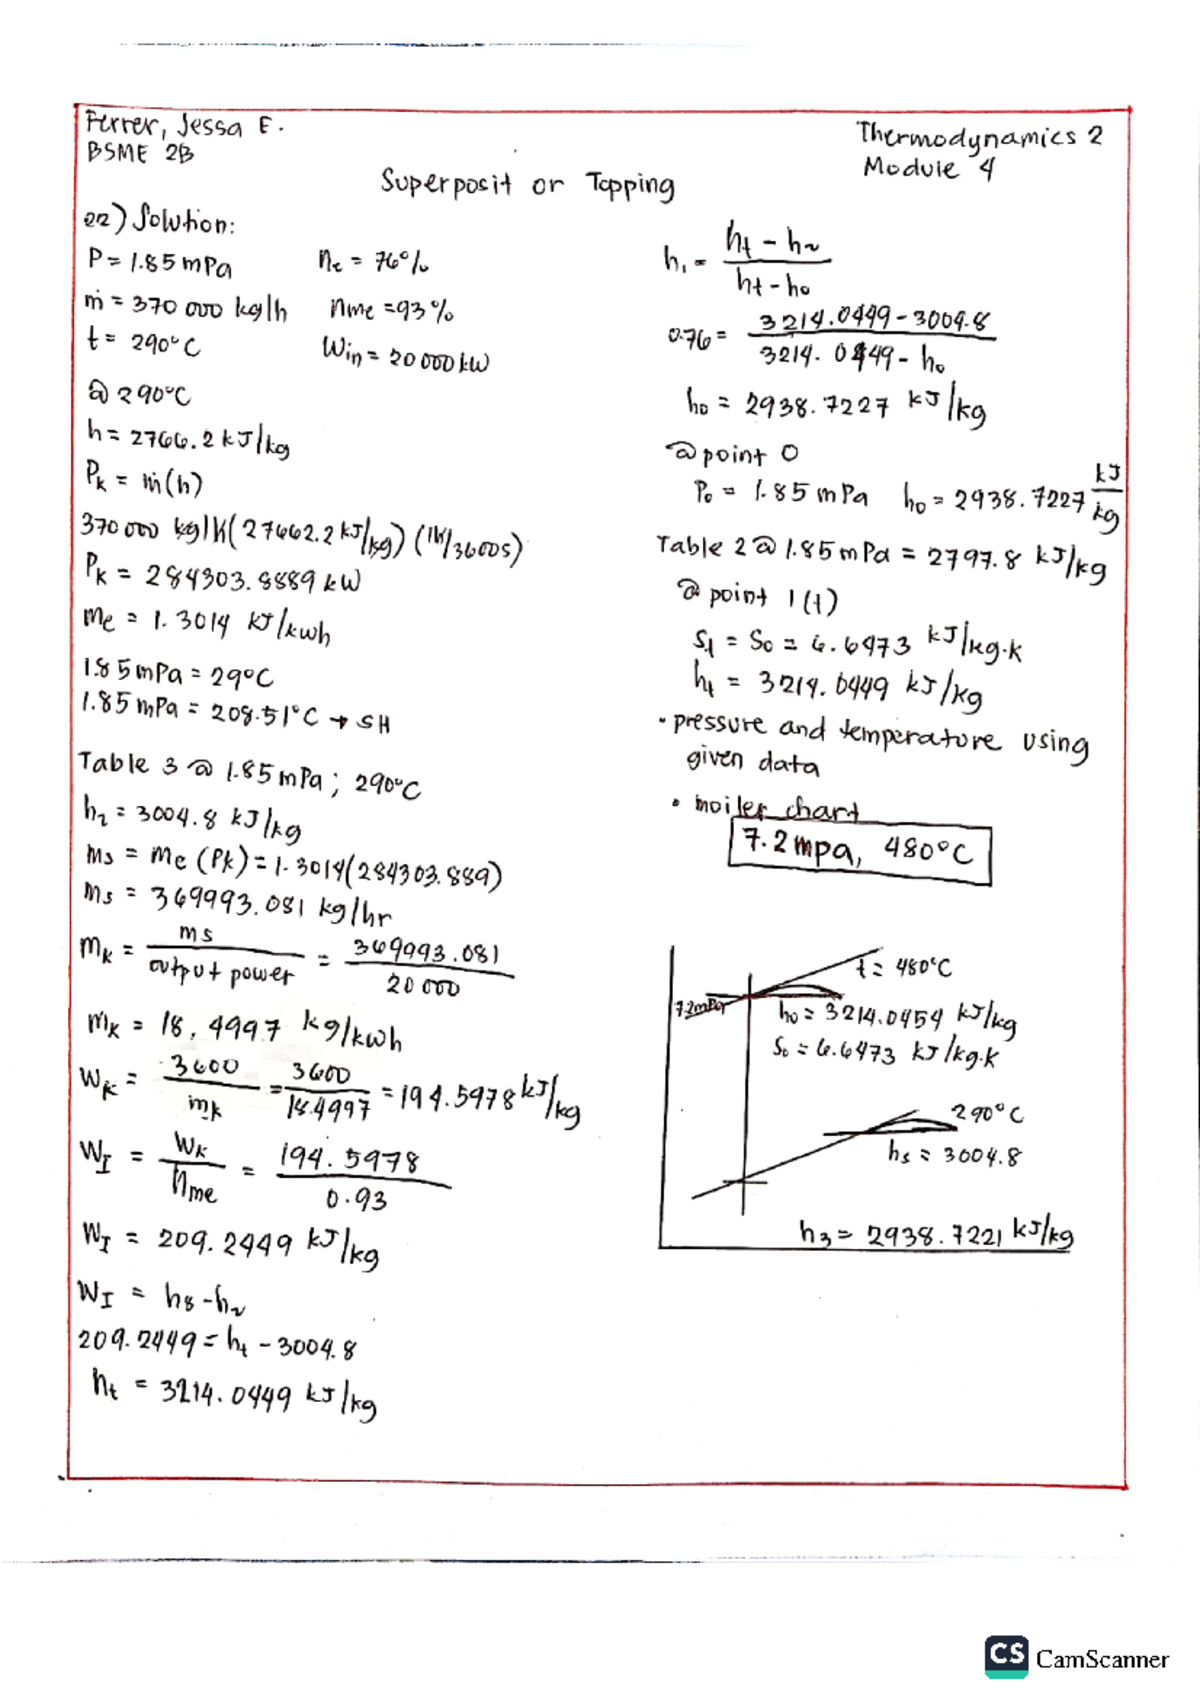 Ferrer, Jessa E.
BSME 2B
Thermodynamics 2
Module 4
Superposit or Topping
e2) Solution:
P = 1.85 mPa
ṁ = 370 000 kg/h
t = 290°C
ηt = 76%
ηme = 93%
Win = 20 000 kW
@ 290°C
h = 2766.2 kJ/kg
Pk = ṁ(h)
370 000 kg/h (27662.2 kJ/kg) (1h/3600s)
Pk = 284303.8889 kW
me = 1.3014 kJ/kwh
1.85 mPa = 29°C
1.85 mPa = 208.51°C → SH
Table 3 @ 1.85 mPa ; 290°C
h2 = 3004.8 kJ/kg
ms = me (Pk) = 1.3014(284303.889)
ms = 369993.081 kg/hr
mk = ms / output power = 369993.081 / 20 000
mk = 18.4997 kg/kwh
Wk = 3600 / mk = 3600 / 18.4997 = 194.5978 kJ/kg
WI = Wk / ηme = 194.5978 / 0.93
WI = 209.2449 kJ/kg
WI = h8 - h2
209.2449 = ht - 3004.8
ht = 3214.0449 kJ/kg
h1 = ht - h2 / ht - h0
0.76 = 3214.0449 - 3004.8 / 3214.0449 - h0
h0 = 2938.7227 kJ/kg
@ point O
P0 = 1.85 mPa h0 = 2938.7227 kJ/kg
Table 2 @ 1.85 mPa = 2797.8 kJ/kg
@ point 1 (t)
St = S0 = 6.6473 kJ/kg·K
ht = 3214.0449 kJ/kg
• pressure and temperature using
given data
• moiler chart
7.2 mpa, 480°C
t = 480°C
7.2mPa
h0 = 3214.0454 kJ/kg
S0 = 6.6473 kJ/kg·K
290°C
hs = 3004.8
h3 = 2938.7221 kJ/kg
CS CamScanner